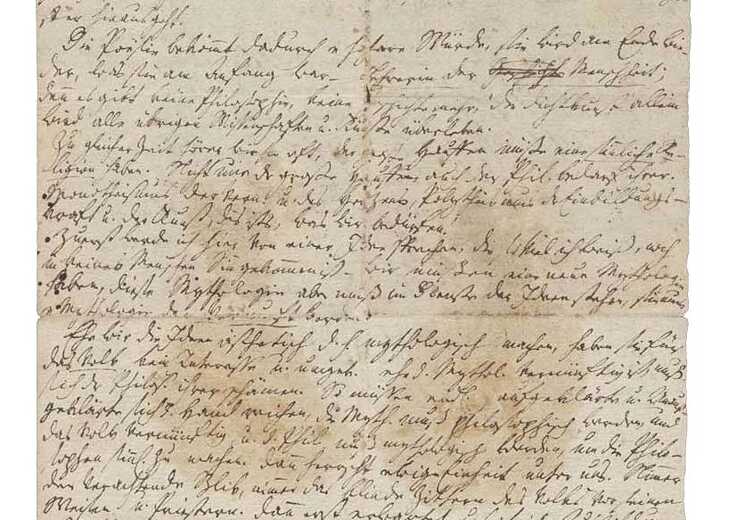 Die Poësie bekömmt dadurch e höhere Würde, sie wird am Ende wie-
der, was sie am Anfang war – Lehrerin der Geschichte Menschheit;
denn es gibt keine Philosophie, keine Geschichte mehr, die Dichtkunst allein
wird alle übrigen Wissenschaften u. Künste überleben.
Zu gleicher Zeit hören wir so oft, der große Hauffen müsse eine sinnliche Re-
ligion haben. Nicht nur der große Hauffen, auch der Phil. bedarf ihrer.
Monotheismus der Vern. u. des Herzens, Polytheismus der Einbildungs-
kraft u. der Kunst, dis ists, was wir bedürfen!
Zuerst werde ich hier von einer Idee sprechen, die soviel ich weis, noch
in keines Menschen Sinn gekommen ist – wir müssen eine neue Mythologie
haben, diese Mythologie aber muß im Dienste der Ideen stehen, sie mus
e Mythologie der Vernunft werden.
Ehe wir die Ideen ästhetisch d. h. mythologisch machen, haben sie für
das Volk kein Interesse u. umgek. ehe d. Mythol. vernünftig ist, muß
sich d. Philos. ihrer schämen. So müssen endl. aufgeklärte u. Unauf-
geklärte sich d. Hand reichen, die Myth. muß philosophisch werden, und
das Volk vernünftig, u. d. Phil. muß mythologisch werden, um die Philo-
sophen sinnl. zu machen. Dann herrscht ewige Einheit unter uns. Nimmer
der verachtende Blik, nimmer das blinde Zittern des Volks vor seinen
Weisen u. Priestern. Dann erst erwartet uns